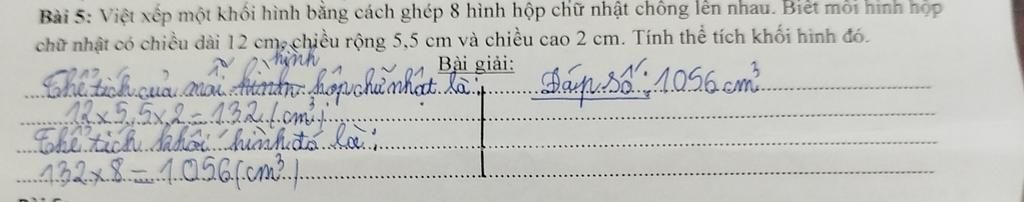 Bài 5: Việt xếp một khối hình bằng cách ghép 8 hình hộp chữ nhật chồng lên nhau. Biết mỗi hình hộp
chữ nhật có chiều dài 12 cm, chiều rộng 5,5 cm và chiều cao 2 cm. Tính thể tích khối hình đó.
Bài giải:
Thể tích của mỗi hình hộp chữ nhật là:
12 x 5,5 x 2 = 132 (cm³)
Thể tích khối hình đó là:
132 x 8 = 1056 (cm³)
Đáp số: 1056 cm³